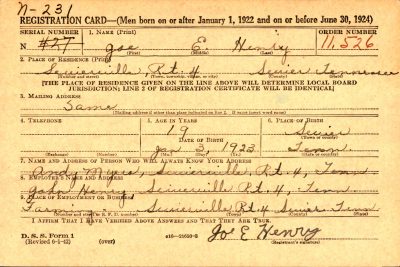 N-231
REGISTRATION CARD—(Men born on or after January 1, 1922 and on or before June 30, 1924)
SERIAL NUMBER 1. NAME (Print) ORDER NUMBER
N #27 Joe E. Henry 11,526
(First) (Middle) (Last)
2. PLACE OF RESIDENCE (Print)
Sevierville Rt. 4 Sevier Tennessee
[THE PLACE OF RESIDENCE GIVEN ON THE LINE ABOVE WILL DETERMINE LOCAL BOARD
JURISDICTION; LINE 2 OF REGISTRATION CERTIFICATE WILL BE IDENTICAL]
3. MAILING ADDRESS
Same
[Mailing address if other than place indicated on line 2. If same insert word same]
4. TELEPHONE 5. AGE IN YEARS 6. PLACE OF BIRTH
19 Sevier
DATE OF BIRTH
Jan 3, 1923 Tenn.
7. NAME AND ADDRESS OF PERSON WHO WILL ALWAYS KNOW YOUR ADDRESS
Andy Sevierville, Rt. 4, Tenn
8. EMPLOYER'S NAME AND ADDRESS
John Henry Sevierville Rt. 4, Tenn.
9. PLACE OF EMPLOYMENT OR BUSINESS
Farming Sevierville Rt. 4 Sevier Tenn
I AFFIRM THAT I HAVE VERIFIED ABOVE ANSWERS AND THAT THEY ARE TRUE.
D. S. S. Form 1
(Revised 6-1-42) (over) Joe E Henry
(Registrant's signature)